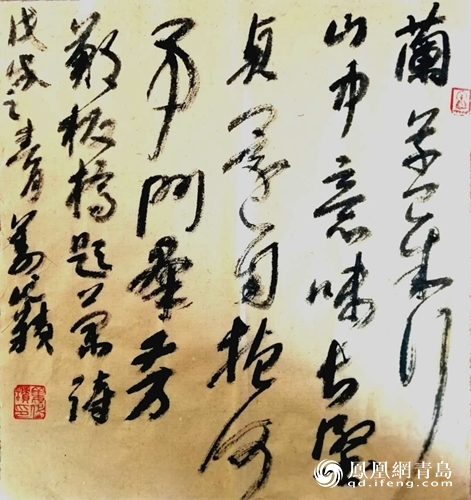 蘭草已成行
山中意味长堅
貞還自抱何
事鬥羣芳
鄭板橋題蘭詩
戊戌之春
鳳凰網青島
qd.ifeng.com